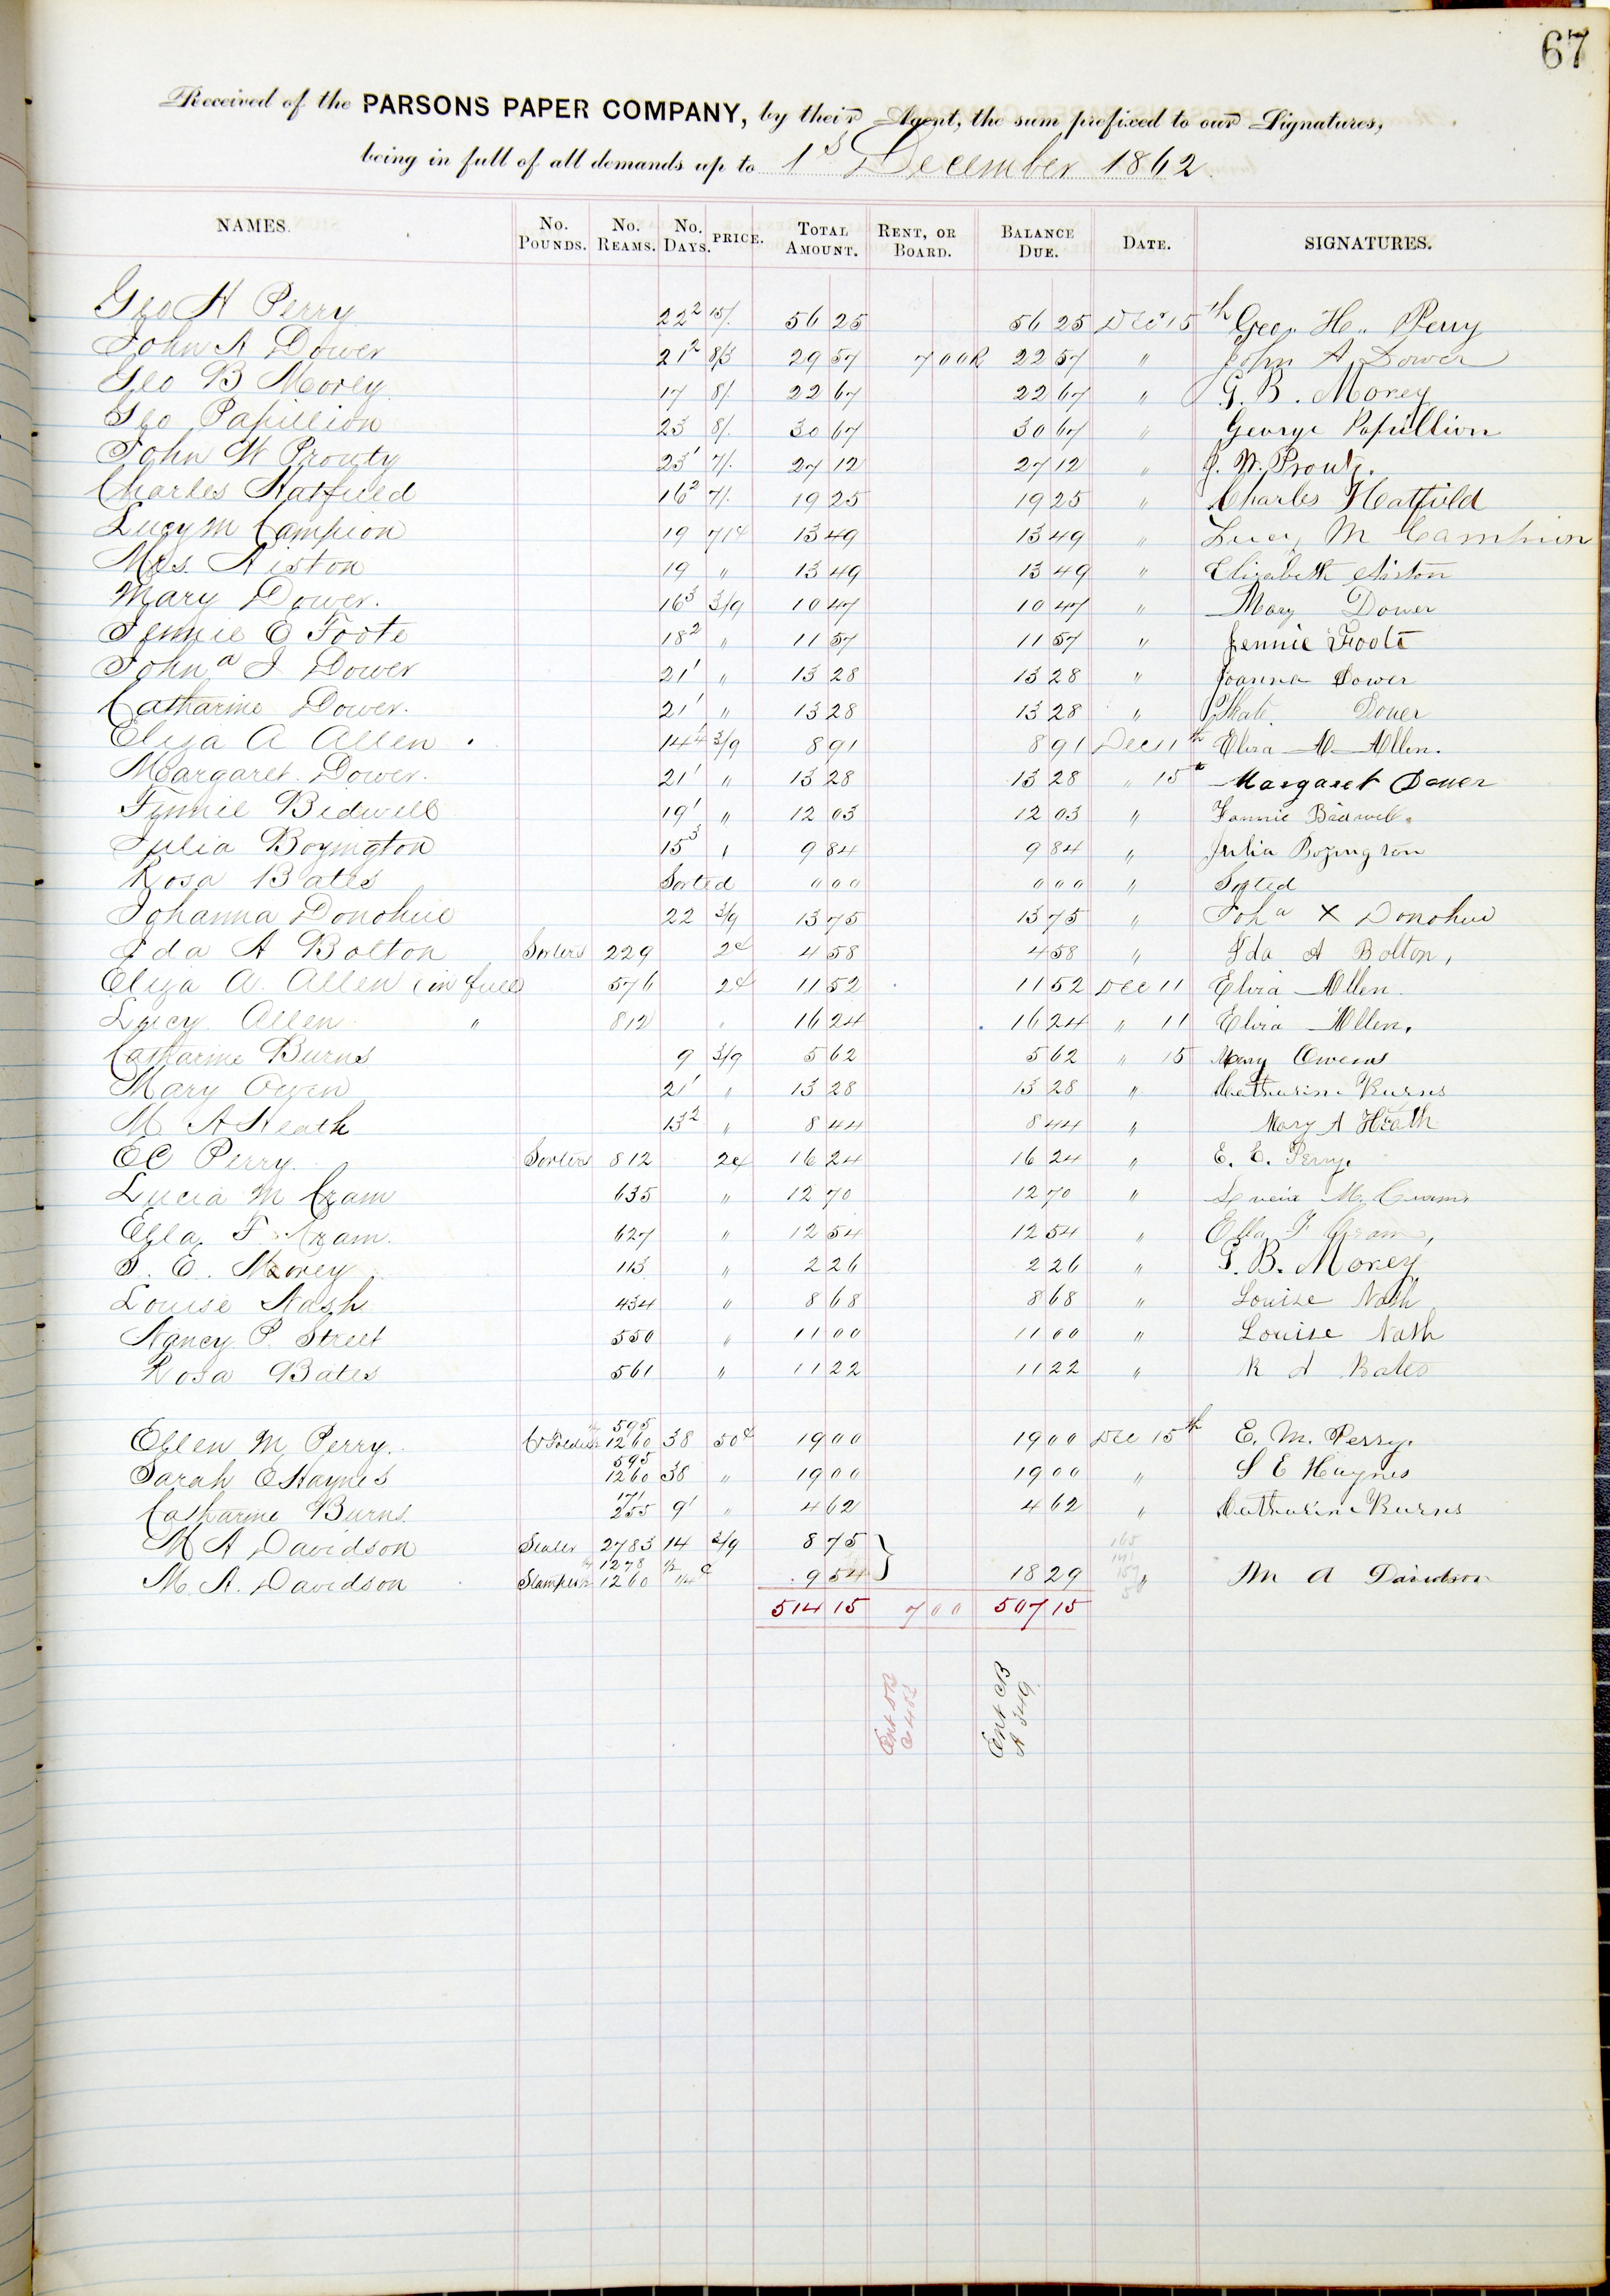 67
Received of the PARSONS PAPER COMPANY, by their Agent, the sum prefixed to our Signatures,
being in full of all demands up to 1st December 1862.
NAMES. No. Pounds. No. Reams. No. Days. PRICE. Total Amount. Rent, or Board. Balance Due. Date. SIGNATURES.
Geo H Perry 22² 15/. 56 25 56 25 Dec 15th Geo. H. Perry
John A Dower 21² 8/3 29 57 7 00 R 22 57 " John A Dower
Geo B Morey 17 8/. 22 67 22 67 " G. B. Morey
Geo Papillion 23 8/. 30 67 30 67 " George Papillion
John W Prouty 23' 7/. 27 12 27 12 " J. W. Prouty.
Charles Hatfield 16² 7/. 19 25 19 25 " Charles Hatfield
Lucy M Campion 19 71¢ 13 49 13 49 " Lucy M Campion
Mrs. Aiston 19 " 13 49 13 49 " Elizabeth Aiston
Mary Dower. 16³ 3/9 10 47 10 47 " Mary Dower
Jennie E Foote 18² " 11 57 11 57 " Jennie Foote
Johna J Dower 21' " 13 28 13 28 " Joanna Dower
Catharine Dower. 21' " 13 28 13 28 " Kate. Dower
Eliza A Allen. 14¼ 3/9 8 91 8 91 Dec 11th Elvira A Allen.
Margaret Dower. 21' " 13 28 13 28 " 15th Margaret Dower
Fannie Bidwell 19' " 12 03 12 03 " Fannie Bidwell.
Julia Boyington 15³ " 9 84 9 84 " Julia Boyington
Rosa Bates Sorted 0 00 0 00 " Sorted
Johanna Donohue 22 3/9 13 75 13 75 " Joha X Donohue
Ida A Bolton Sorters 229 2¢ 4 58 4 58 " Ida A Bolton,
Eliza A. Allen (in full) 576 2¢ 11 52 11 52 Dec 11 Elvira Allen.
Lucy Allen " 812 16 24 16 24 " 11 Elvira Allen.
Catharine Burns 9 3/9 5 62 5 62 " 15 Mary Owens
Mary Owen 21' " 13 28 13 28 " Catharine Burns
M A Heath 13² " 8 44 8 44 " Mary A Heath
E C Perry. Sorters 812 2¢ 16 24 16 24 " E. C. Perry.
Lucia M Cram 635 " 12 70 12 70 " Lucia M. Cram.
Ella F. Cram. 627 " 12 54 12 54 " Ella F Cram,
S. E. Morey 113 " 2 26 2 26 " G. B. Morey
Louise Nash 434 " 8 68 8 68 " Louise Nash
Nancy P. Street 550 " 11 00 11 00 " Louise Nash
Rosa Bates 561 " 11 22 11 22 " R A Bates
595
Ellen M Perry. 1260 38 50¢ 19 00 19 00 Dec 15th E. M. Perry.
595
Sarah E Haynes 1260 38 " 19 00 19 00 " S E Haynes
171
Catharine Burns. 255 9' " 4 62 4 62 " Catharine Burns
M A Davidson Sealer 2783 14 3/9 8 75
1278 ½
M. A. Davidson Stampers 1260 ¼ ¢ 9 54 18 29 " M A Davidson
514 15 7 00 507 15
Ent CB
A 349